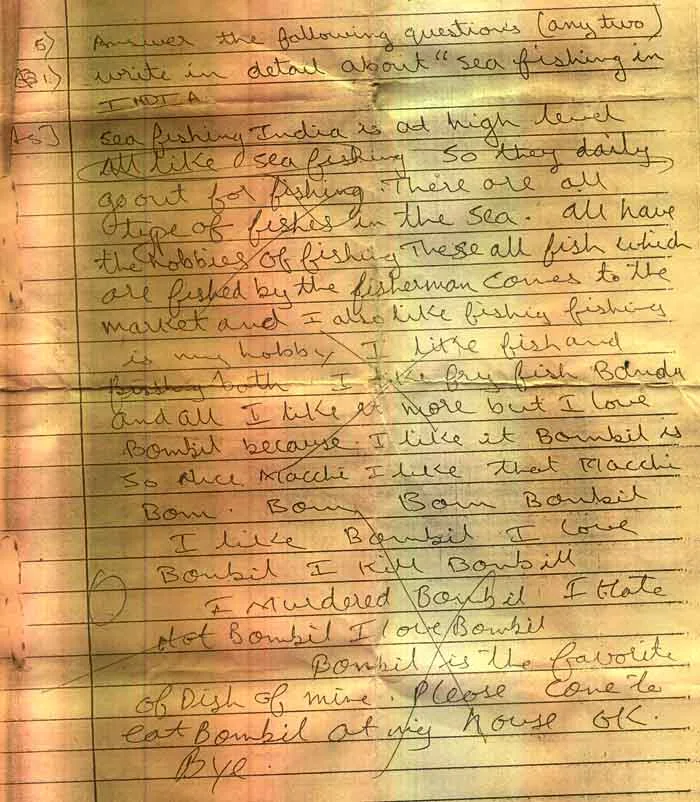 5) Answer the following questions (any two)
Q1) write in detail about "sea fishing in
INDIA.
As] Sea fishing India is at high level
All like sea fishing So they daily
go out for fishing. There are all
type of fishes in the sea. all have
the hobbies of fishing These all fish which
are fished by the fisherman comes to the
market and I also like fishig fishing
is my hobby I like fish and
both I like fry fish Bandu
and all I like it more but I love
Bombil because I like it Bombil is
So Nice Macchi I like that Macchi
Bom. Bom Bom Bombil
I like Bombil I love
Bombil I Kill Bombill
I Murdered Bombil I Hate
Not Bombil I love Bombil
Bombil is the favorite
of Dish of mine. Please come to
eat Bombil at my house OK.
Bye.